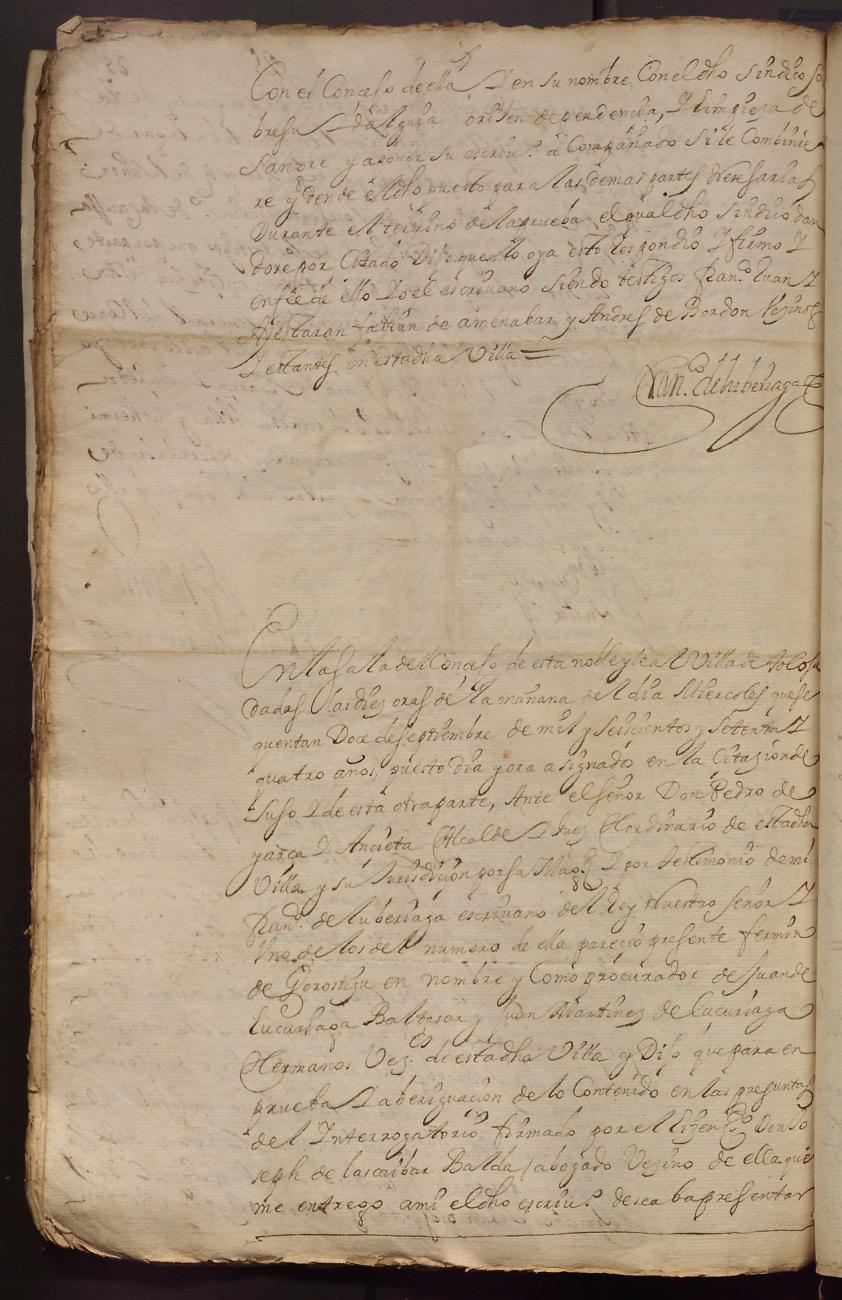 Con el Conçejo de ella Y en su nombre Con el dho sindico so
bre su Ydalguia orijen dependencia, Y limpieza de
Sangre y aponer su escriu.º a Compañado si le Combinie
re y dende el dho puesto para las demas partes Neçesarias
Durante el termino de la prueba, el qual dho Sindico dan
dose por Citado Dijo que lo oya esto Respondio Y firmo Y
en fee de ello Yo el escriuano siendo testigos Fran.co Juan Y
de amenabar y Andres de Bordon Vezinos
Y estantes en esta dha Villa =
Fran.co de luberiaga
En la Sala del Conçejo de esta noble y leal Villa de tolosa
dadas las diez oras de la mañana del dia Miercoles que se
quentan Doce de septiembre de mil y seiscientos y setenta Y
quatro años, puesto dia y ora asignado en la Citazion de
suso Y de esta otra parte, Ante el señor Don Pedro de
yarça Y Ancieta Alcalde Y Juez Hordinario de esta dha
Villa y su Jurisdiçion por su Mag.d Y por testimonio de mi
Fran.co de luberiaga escriuano del Rey Nuestro Señor Y
Vno de los del numero de ella pareçio presente fermin
de Gorostigu en nombre y Como procurador de Juan de
Eucuriaga Baltasar y Juan Martinez de Eucuriaga
Hermanos Vez.es de esta dha Villa y Dijo que para en
prueba Y aberiguaçion de lo Contenido en las preguntas
del Ynterrogatorio firmado por el Lizen.do Don Jo
seph de lascaibar Balda abogado Vezino de ella que
me entrego ami el dho escriu.º desea ba presentar